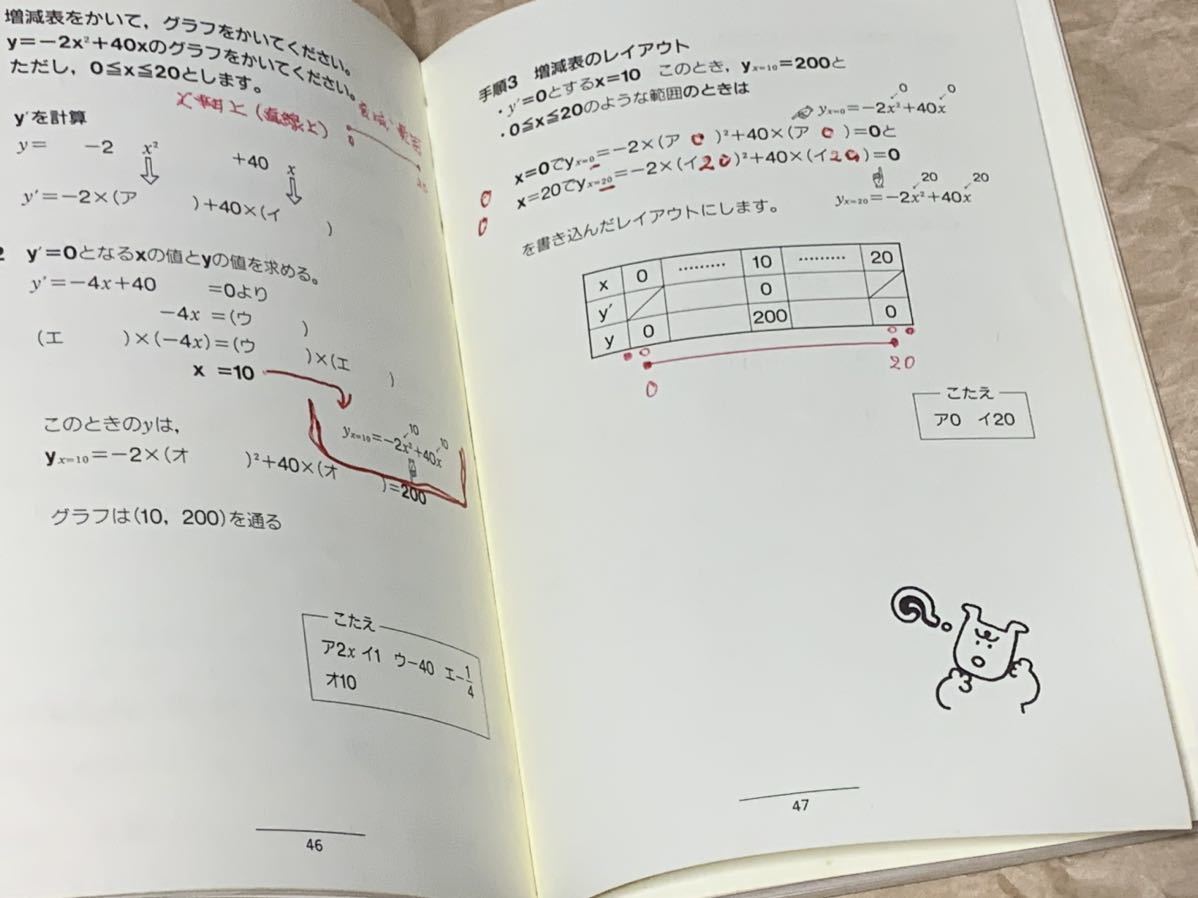 増減表をかいて，グラフをかいてください。
y=-2x²+40xのグラフをかいてください。
ただし，0≦x≦20とします。
x軸上(直線上)
0
20
y'を計算
y= -2 x² +40 x
y'=-2×(ア )+40×(イ )
2 y'=0となるxの値とyの値を求める。
y'=-4x+40 =0より
-4x =(ウ )
(エ )×(-4x)=(ウ )×(エ )
x =10
このときのyは，
10 10
yx=10=-2x²+40x
yx=10=-2×(オ )²+40×(オ )=200
グラフは(10，200)を通る
こたえ
ア2x イ1 ウ-40 エ-1/4
オ10
46
手順3 増減表のレイアウト
・y'=0とするx=10 このとき，yx=10=200と
・0≦x≦20のような範囲のときは
0 0
yx=0=-2x²+40x
0 x=0でyx=0=-2×(ア 0 )²+40×(ア 0 )=0と
0 x=20でyx=20=-2×(イ20)²+40×(イ20)=0
20 20
yx=20=-2x²+40x
を書き込んだレイアウトにします。
x 0 ……… 10 ……… 20
y' 0
y 0 200 0
0 20
こたえ
ア0 イ20
47